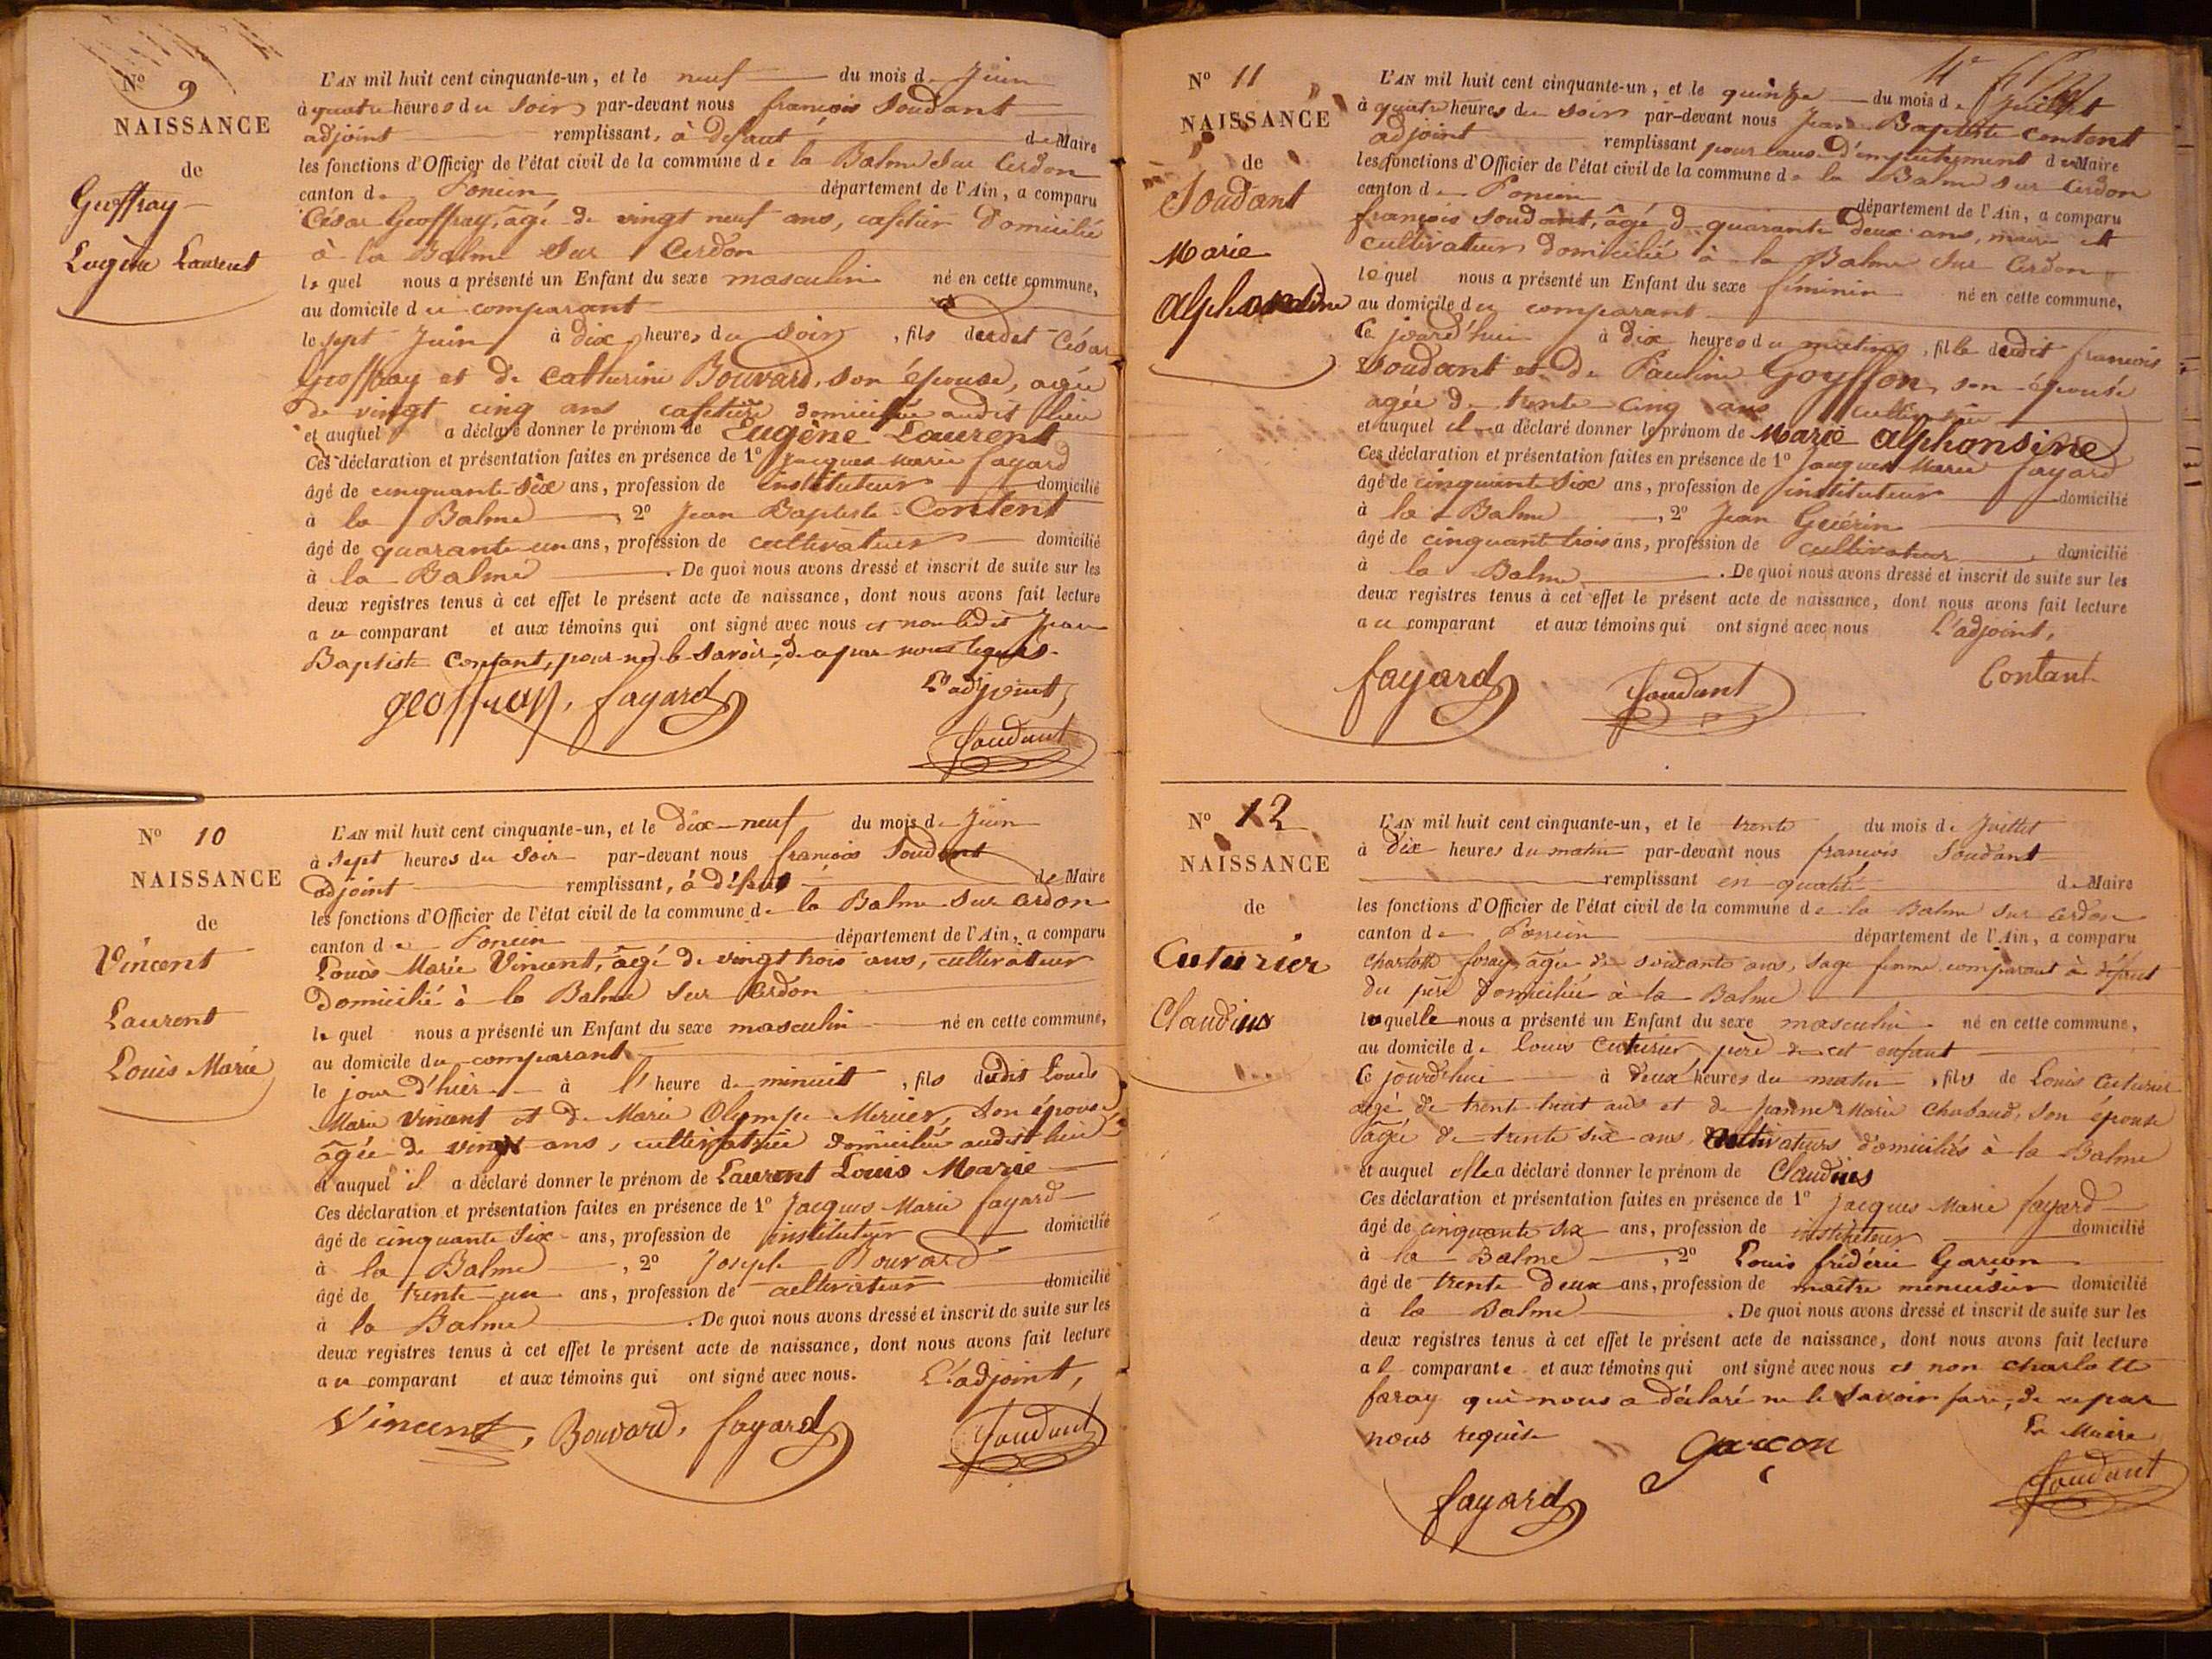 N° 9
NAISSANCE
de
Geoffray
Eugène Laurent
L'AN mil huit cent cinquante-un, et le neuf du mois de Juin
à quatre heures du soir par-devant nous françois Soudant
adjoint remplissant, à défaut de Maire
les fonctions d'Officier de l'état civil de la commune de la Balme sur Cerdon
canton de Poncin département de l'Ain, a comparu
César Geoffray, âgé de vingt neuf ans, cafetier domicilié
à la Balme sur Cerdon
lequel nous a présenté un Enfant du sexe masculin né en cette commune,
au domicile du comparant
le sept Juin à dix heures du soir, fils dudit César
Geoffray et de Catherine Bouvard, son épouse, agée
de vingt cinq ans cafetière domiciliée audit lieu
et auquel a déclaré donner le prénom de Eugène Laurent
Ces déclaration et présentation faites en présence de 1° Jacques Marie fayard
âgé de cinquante six ans, profession de instituteur domicilié
à la Balme, 2° Jean Baptiste Content
âgé de quarante un ans, profession de cultivateur domicilié
à la Balme. De quoi nous avons dressé et inscrit de suite sur les
deux registres tenus à cet effet le présent acte de naissance, dont nous avons fait lecture
au comparant et aux témoins qui ont signé avec nous et non ledit Jean
Baptiste Contant, pour ne le savoir, de ce par nous requis.
geoffray, fayard
L'adjoint,
Soudant
N° 10
NAISSANCE
de
Vincent
Laurent
Louis Marie
L'AN mil huit cent cinquante-un, et le dix-neuf du mois de Juin
à sept heures du soir par-devant nous françois Soudant
adjoint remplissant, à défaut de Maire
les fonctions d'Officier de l'état civil de la commune de la Balme sur Cerdon
canton de Poncin département de l'Ain, a comparu
Louis Marie Vincent, âgé de vingt trois ans, cultivateur
domicilié à la Balme sur Cerdon
lequel nous a présenté un Enfant du sexe masculin né en cette commune,
au domicile du comparant
le jour d'hier à l'heure de minuit, fils dudit Louis
Marie Vincent et de Marie Olympe Mercier, son épouse
âgée de vingt ans, cultivatrice domiciliée audit lieu
et auquel il a déclaré donner le prénom de Laurent Louis Marie
Ces déclaration et présentation faites en présence de 1° Jacques Marie fayard
âgé de cinquante six ans, profession de instituteur domicilié
à la Balme, 2° Joseph Bouvard
âgé de trente-un ans, profession de cultivateur domicilié
à la Balme. De quoi nous avons dressé et inscrit de suite sur les
deux registres tenus à cet effet le présent acte de naissance, dont nous avons fait lecture
au comparant et aux témoins qui ont signé avec nous. L'adjoint,
Vincent, Bouvard, fayard
Soudant
N° 11
NAISSANCE
de
Soudant
Marie
Alphonsine
L'AN mil huit cent cinquante-un, et le quinze du mois de Juillet
à quatre heures du soir par-devant nous Jean Baptiste Content
adjoint remplissant pour cause d'empêchement du Maire
les fonctions d'Officier de l'état civil de la commune de la Balme sur Cerdon
canton de Poncin département de l'Ain, a comparu
françois Soudant, âgé de quarante deux ans, maire et
cultivateur domicilié à la Balme sur Cerdon
lequel nous a présenté un Enfant du sexe féminin né en cette commune,
au domicile du comparant
Ce jourd'hui à dix heures du matin, fille dudit françois
Soudant et de Pauline Goyffon, son épouse
agée de trente cinq ans cultivatrice
et auquel il a déclaré donner le prénom de Marie alphonsine
Ces déclaration et présentation faites en présence de 1° Jacques Marie fayard
âgé de cinquante six ans, profession de instituteur domicilié
à la Balme, 2° Jean Guérin
âgé de cinquante trois ans, profession de cultivateur domicilié
à la Balme. De quoi nous avons dressé et inscrit de suite sur les
deux registres tenus à cet effet le présent acte de naissance, dont nous avons fait lecture
au comparant et aux témoins qui ont signé avec nous L'adjoint,
fayard Soudant Contant
N° 12
NAISSANCE
de
Cuturier
Claudius
L'AN mil huit cent cinquante-un, et le trente du mois de Juillet
à dix heures du matin par-devant nous françois Soudant
remplissant en qualité de Maire
les fonctions d'Officier de l'état civil de la commune de la Balme sur Cerdon
canton de Poncin département de l'Ain, a comparu
Charlotte foray, âgée de soixante ans, sage femme comparant à défaut
du père domiciliée à la Balme
laquelle nous a présenté un Enfant du sexe masculin né en cette commune,
au domicile de Louis Cuturier père de cet enfant
Ce jourd'hui à deux heures du matin, fils de Louis Cuturier
agé de trente huit ans et de Jeanne Marie Chabaud, son épouse
âgée de trente six ans, cultivateurs domiciliés à la Balme
et auquel elle a déclaré donner le prénom de Claudius
Ces déclaration et présentation faites en présence de 1° Jacques Marie fayard
âgé de cinquante six ans, profession de instituteur domicilié
à la Balme, 2° Louis frédéric Garcon
âgé de trente deux ans, profession de maître menuisier domicilié
à la Balme. De quoi nous avons dressé et inscrit de suite sur les
deux registres tenus à cet effet le présent acte de naissance, dont nous avons fait lecture
a la comparante et aux témoins qui ont signé avec nous et non Charlotte
foray qui nous a déclaré ne le savoir faire, de ce par
nous requise
Le Maire
garçon
fayard
Soudant